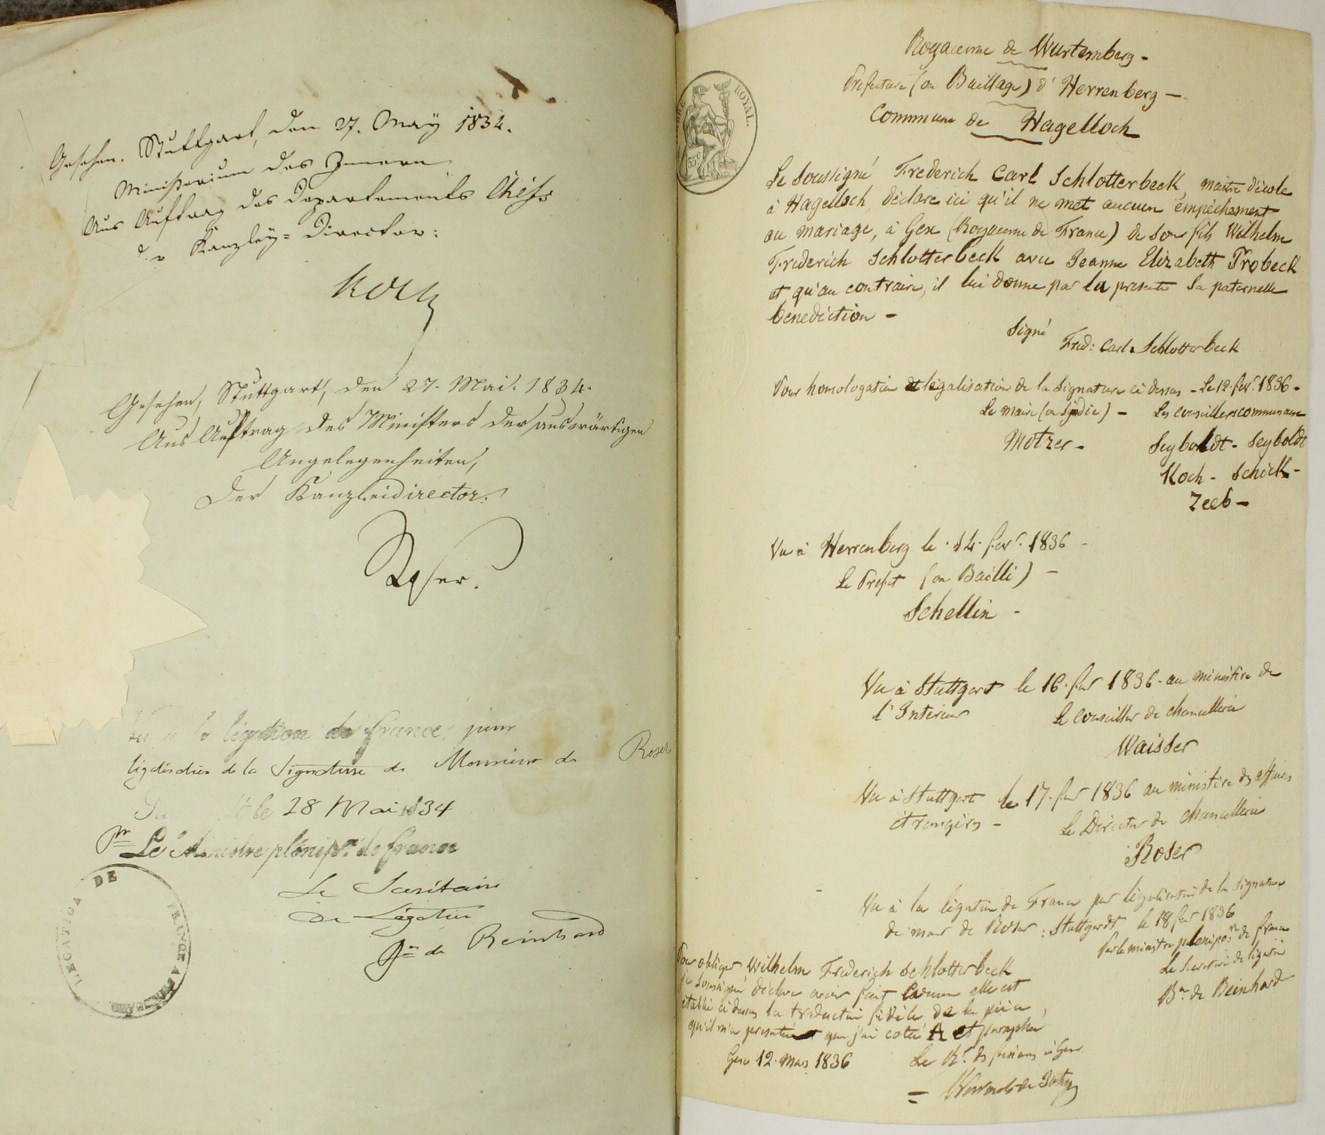 Gesehen. Stuttgart, den 27. May 1834.
Ministerium des Innern
Aus Auftrag des Departements Chefs
der Kanzley=Director:
Gesehen, Stuttgart, den 27. Mai. 1834.
Aus Auftrag des Ministers der auswärtigen
Angelegenheiten,
Der Kanzleidirector.
Roser.
Vu à la légation de france, pour
légalisation de la Signature de Monsieur de Roser
le 28 Mai 1834
Pr Le Ministre plénip.re de france
Le Secrétaire
De Légation
Bon de Reinhard
LEGATION DE FRANCE A
ROYAL.
Royaume de Wurtemberg -
Prefecture (ou Baillage) d'Herrenberg -
Commune de Hagelloch
Le Soussigné Frederich Carl Schlotterbeck, maitre d'école
à Hagelloch, déclare ici qu'il ne met aucun empêchement
au mariage, à Gex (Royaume de France) de son fils Wilhelm
Frederich Schlotterbeck avec Jeanne Elizabeth Probeck
et qu'au contraire, il lui donne par la presente sa paternelle
benediction -
Signé
Fred: Carl Schlotterbeck
Pour homologation et légalisation de la Signature ci dessus - Le 12 fevr 1836 -
Le maire (ou Sindic) - Les conseillers communaux
Motzer - Seyboldt - Seyboldt
Koch - Schick -
Zeeb -
Vu à Herrenberg le 14 fevr. 1836 -
Le Prefet (ou Bailli) -
Schellin -
Vu à Stuttgart le 16 fevr 1836 - au ministère de
l'Interieur Le Conseiller de chancellerie
Waisser
Vu à Stuttgart le 17 fevr 1836 au ministère des affaires
étrangères - Le Director de chancellerie
Roser
Vu à la légation de France pour légalisation de la Signature
de mons de Roser: Stuttgardt le 18 fevr 1836
Par le ministre plenipo.re de france
Le Secretaire de légation
Bn de Reinhard
Pour obliger Wilhelm Frederich Schlotterbeck
le soussigné déclare avoir fait comme elle est
établie ci dessus la traduction fidèle de la pièce
qu'il m'a presentée et que j'ai coté A et paraphée
Gex 12 Mars 1836